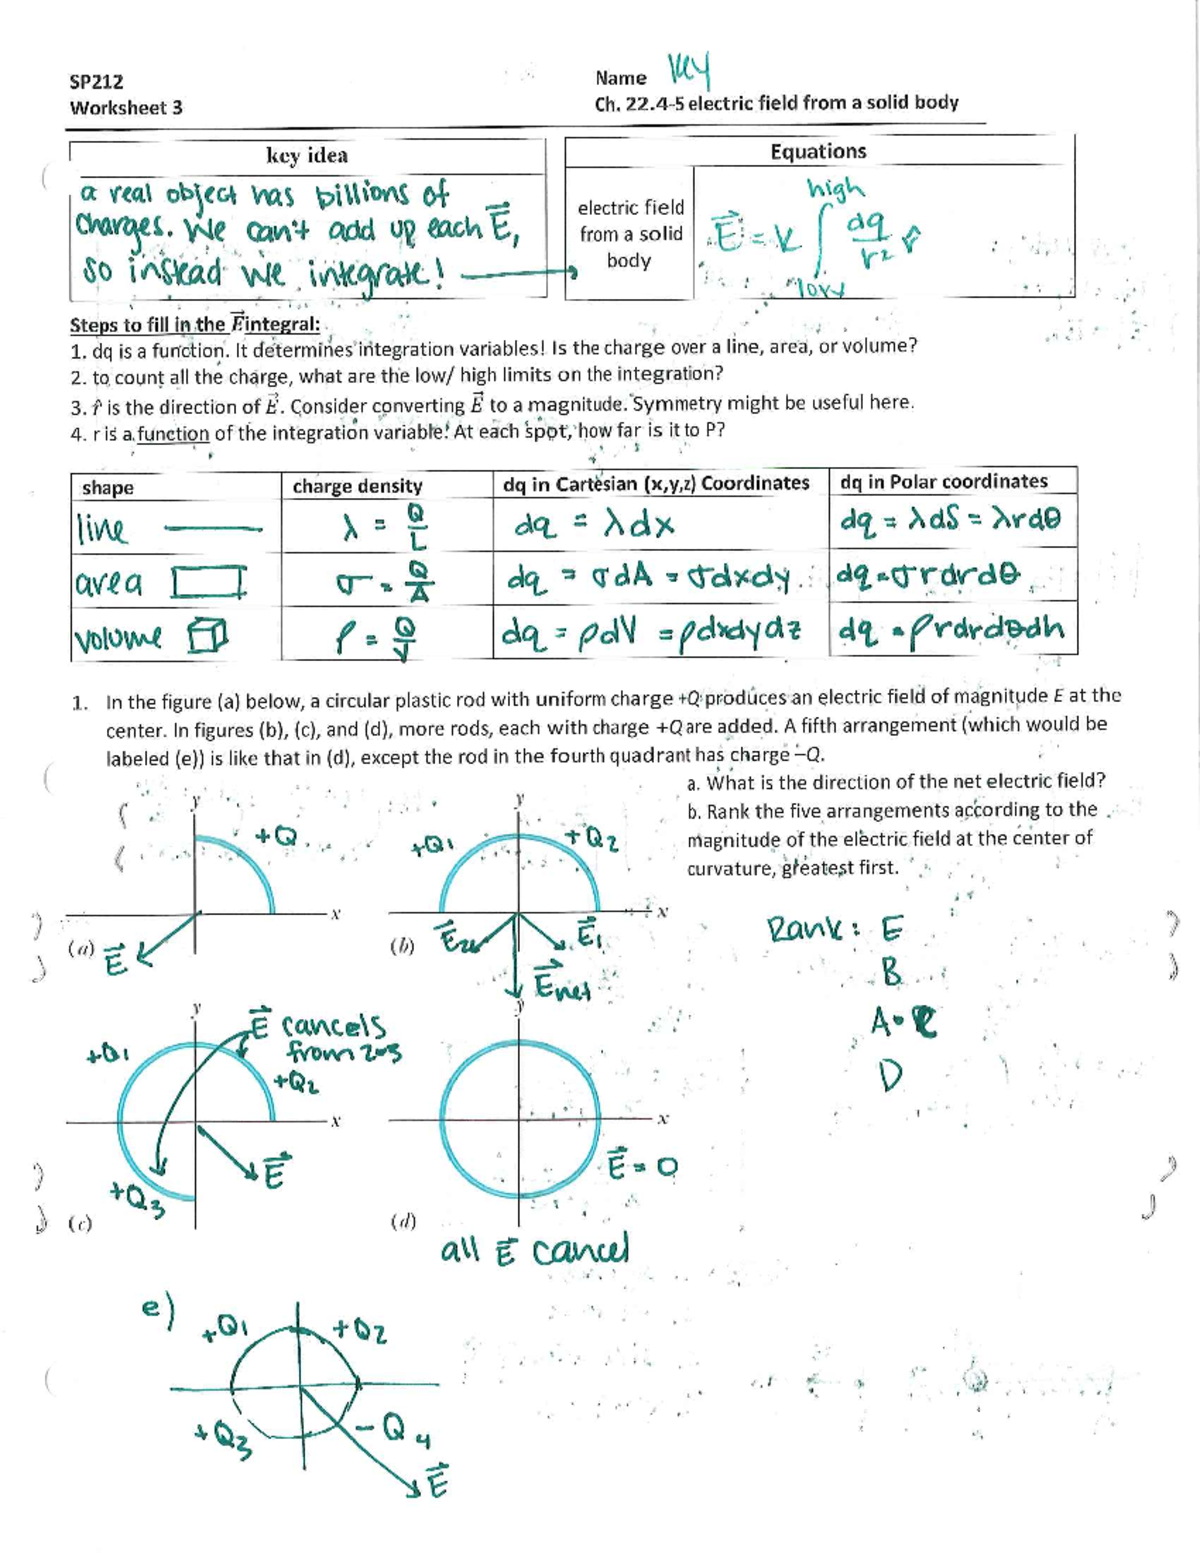 SP212
Name Key
Worksheet 3
Ch. 22.4-5 electric field from a solid body
key idea
a real object has billions of
charges. We can't add up each E⃗,
so instead we integrate!
Equations
electric field
from a solid
body
high
E⃗ = k ∫ dq/r² r̂
low
Steps to fill in the E⃗ integral:
1. dq is a function. It determines integration variables! Is the charge over a line, area, or volume?
2. to count all the charge, what are the low/ high limits on the integration?
3. r̂ is the direction of E⃗. Consider converting E⃗ to a magnitude. Symmetry might be useful here.
4. r is a function of the integration variable! At each spot, how far is it to P?
shape charge density dq in Cartesian (x,y,z) Coordinates dq in Polar coordinates
line λ = Q/L dq = λdx dq = λdS = λrdθ
area σ = Q/A dq = σdA = σdxdy dq = σrdrdθ
volume ρ = Q/V dq = ρdV = ρdxdydz dq = ρrdrdθdh
1. In the figure (a) below, a circular plastic rod with uniform charge +Q produces an electric field of magnitude E at the
center. In figures (b), (c), and (d), more rods, each with charge +Q are added. A fifth arrangement (which would be
labeled (e)) is like that in (d), except the rod in the fourth quadrant has charge −Q.
a. What is the direction of the net electric field?
b. Rank the five arrangements according to the
magnitude of the electric field at the center of
curvature, greatest first.
y
+Q
x
(a) E⃗
y
+Q1
+Q2
x
(b) E⃗2 E⃗1
E⃗net
Rank: E
B
A = C
D
y
E⃗ cancels
from 2→3
+Q1
+Q2
x
E⃗
+Q3
(c)
y
x
E⃗ = 0
(d)
all E⃗ cancel
e)
+Q1 +Q2
+Q3 −Q4
E⃗